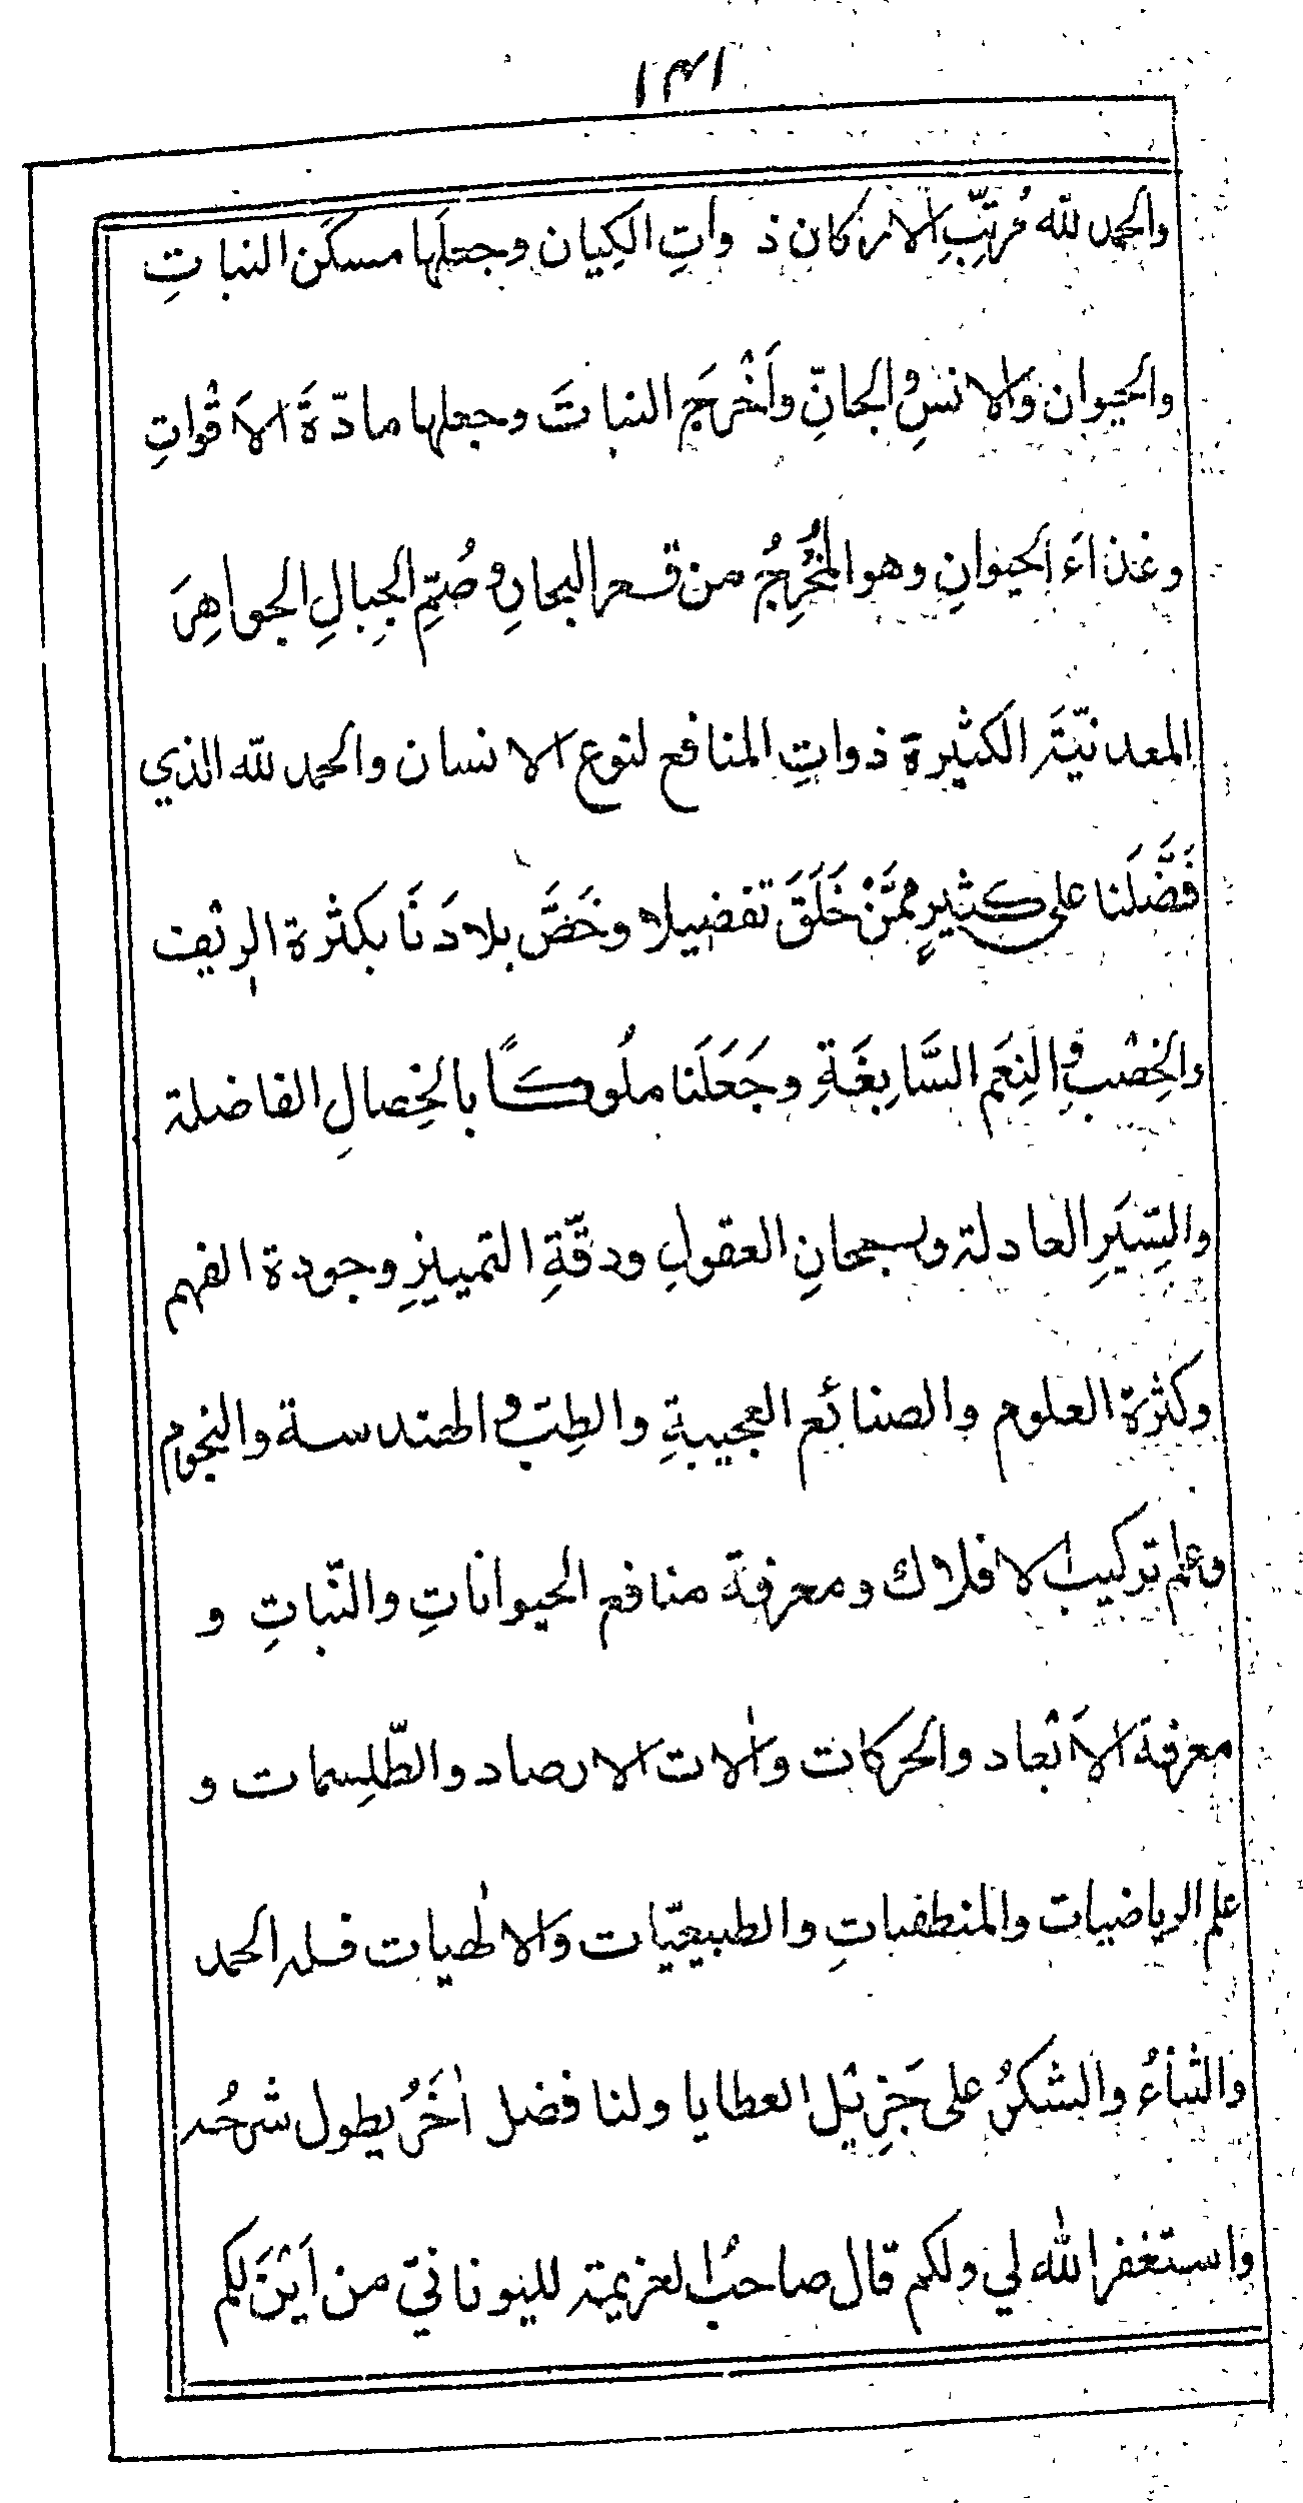 ١٣١
والحمد لله مُرتِّبِ الاركان ذواتِ الكِيان وجعلَها مسكَن النباتِ
والحيوان وَالانسِ والجانِّ وأَخْرَجَ النباتَ وجعلها مادّةَ الاَقْواتِ
وغذاءَ الحيوانِ وهو المُخْرِجُ من قعر البحارِ وصُمِّ الجِبالِ الجواهِرَ
المعدنيّةَ الكثيرة ذواتِ المنافع لنوع الانسان والحمد لله الذي
فَضَّلَنا على كثيرٍ مِمَّنْ خَلَقَ تفضيلا وخَصَّ بلادَنَا بكثرة الريف
والخِصْبِ والنِعَم السَّابِغَةِ وجَعَلَنا ملُوكًا بالخِصالِ الفاضلة
والسِّيَرِ العادلة ورجحانِ العقولِ ودقّةِ التمييزِ وجودة الفهم
وكثرة العلوم والصنائع العجيبةِ والطِبّ والهندسة والنجوم
وعلم تركيب الافلاك ومعرفة منافع الحيواناتِ والنّباتِ و
معرفة الاَبْعاد والحركات والٰات الارصاد والطّلِسمات و
علم الرياضيات والمنطقياتِ والطبيعيّات وَالالٰهيات فله الحمد
والثناءُ والشكرُ على جَزِيْل العطايا ولنا فضل اٰخَرُ يطول شرحُه
واستغفر الله لي ولكم قال صاحبُ العزيمة لليوناني من اَيْنَ لكم